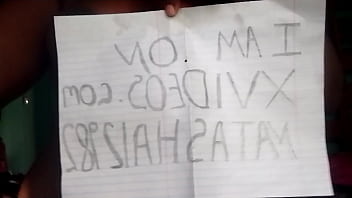 I AM. ON
XVIDEOS.com
NATASHA12982